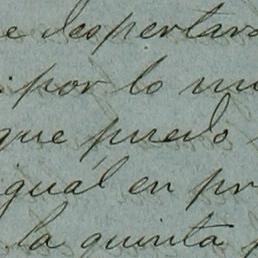 e despertar
por lo mu
que puedo
igual en pr
la quinta p